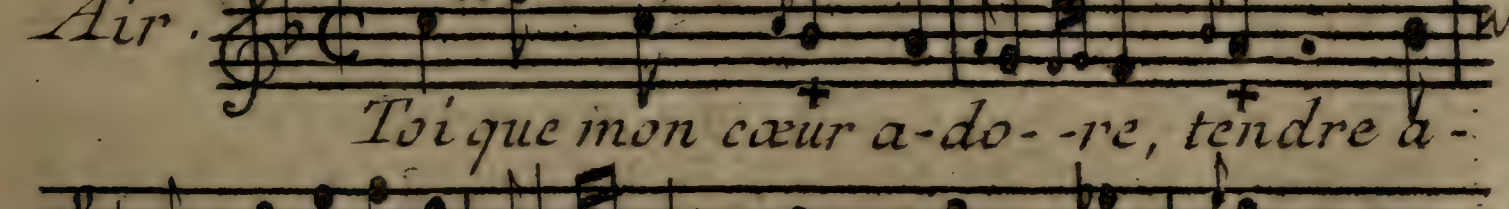 Air.
Toi que mon cœur a-do--re, tendre a-